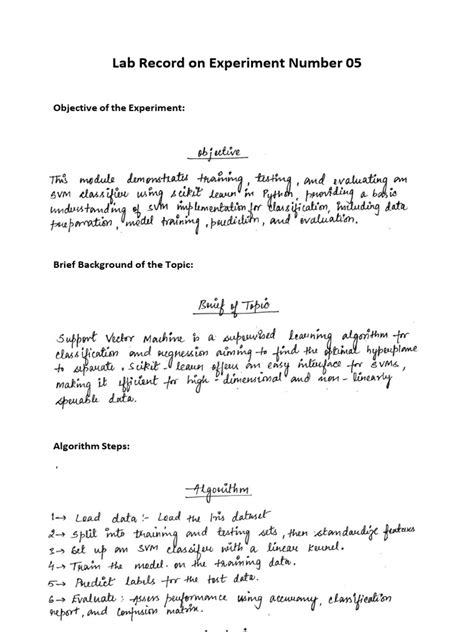 Lab Record on Experiment Number 05
Objective of the Experiment:
objective
This module demonstrates training, testing, and evaluating an
SVM classifier using scikit learn in Python, providing a basic
understanding of SVM implementation for classification, including data
preparration, model training, prediction, and evaluation.
Brief Background of the Topic:
Brief of Topic
Support Vector Machine is a supervised learning algorithm for
classification and regression aiming to find the optimal hyperplane
to separate. Scikit-learn offers an easy interface for SVMs,
making it efficient for high-dimensional and non-linearly
sperable data.
Algorithm Steps:
Algorithm
1→ Load data :- Load the Iris dataset
2→ Split into training and testing sets, then standardize features
3→ Set up an SVM classifer with a linear kernel.
4→ Train the model on the training data.
5→ Predict labels for the test data.
6→ Evaluate : Assess performance using accuracy, classification
report, and confusion matrix.